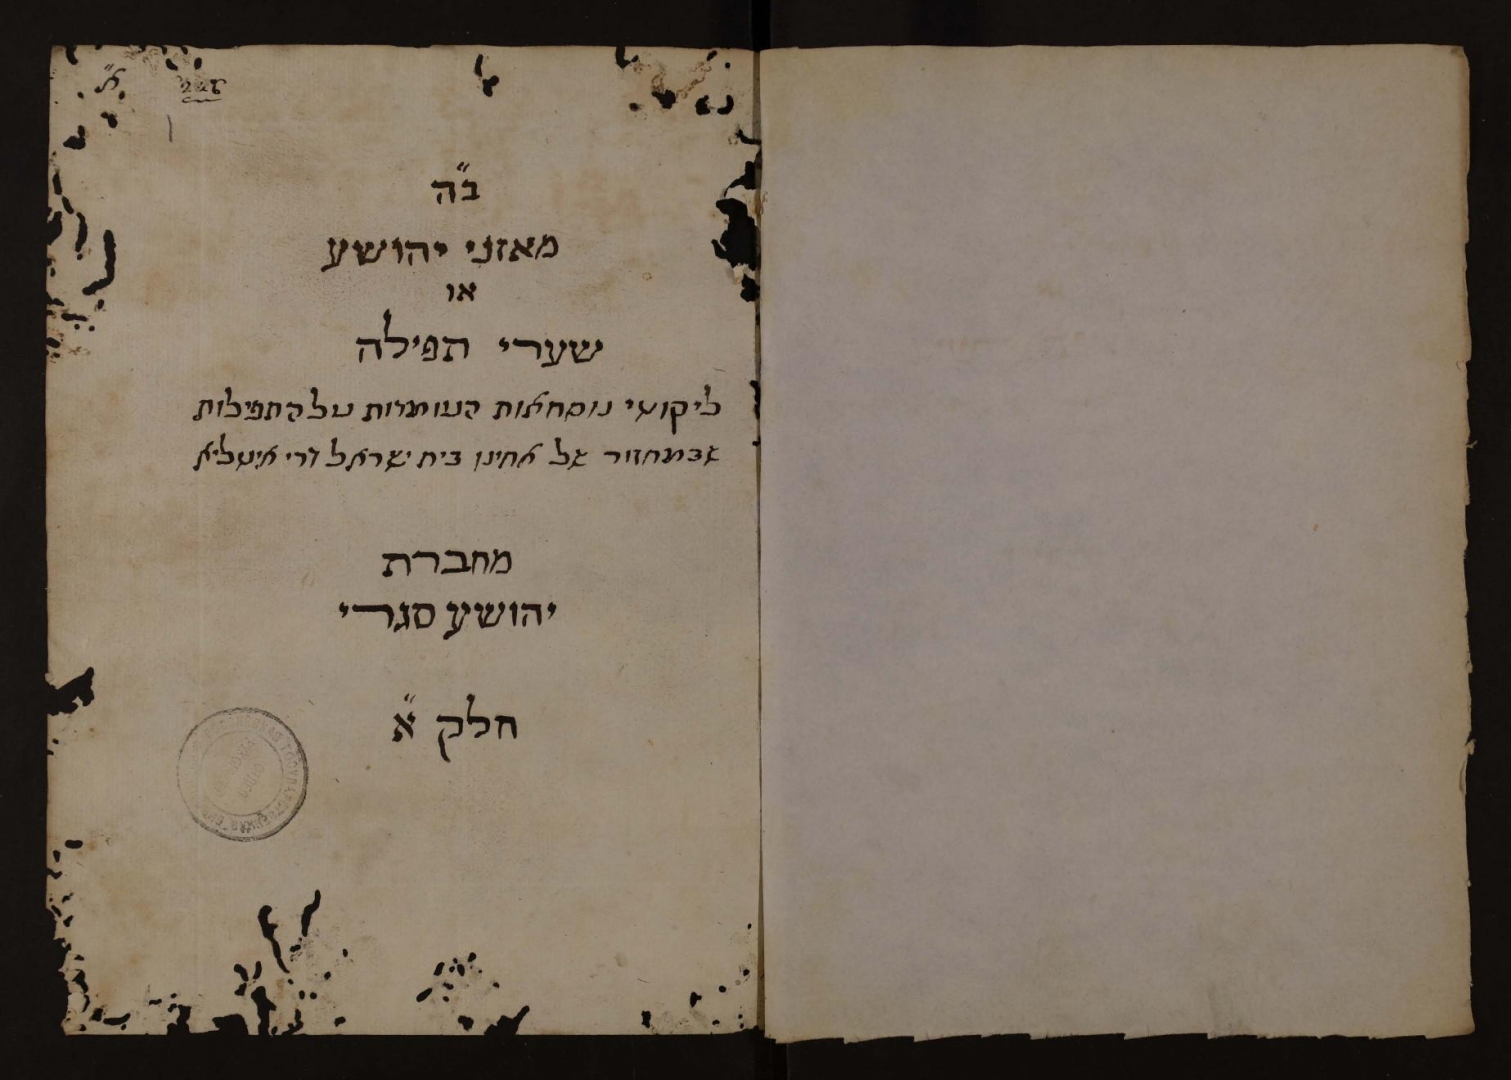 א"
ב"ה
מאזני יהושע
או
שערי תפילה
ליקוטי נוסחאות העומדות על התפילות
שבמחזור של אחינו בית ישראל דרי איטליא
מחברת
יהושע סגרי
חלק א"